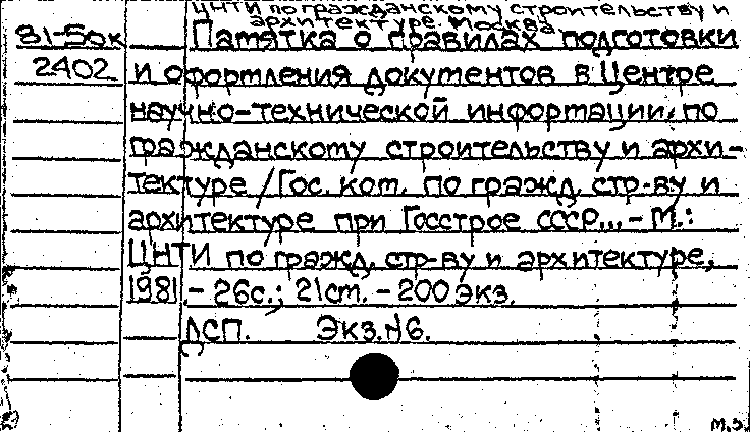 ЦНТИ по гражданскому строительству и
архитектуре. Москва
81-5ок
2402
Памятка о правилах подготовки
и оформления документов в Центре
научно-технической информации по
гражданскому строительству и архи-
тектуре / Гос. ком. по гражд. стр-ву и
архитектуре при Госстрое СССР... - М.:
ЦНТИ по гражд. стр-ву и архитектуре,
1981. - 26с.; 21см. - 200 экз.
ДСП. Экз. №6.
м.з.